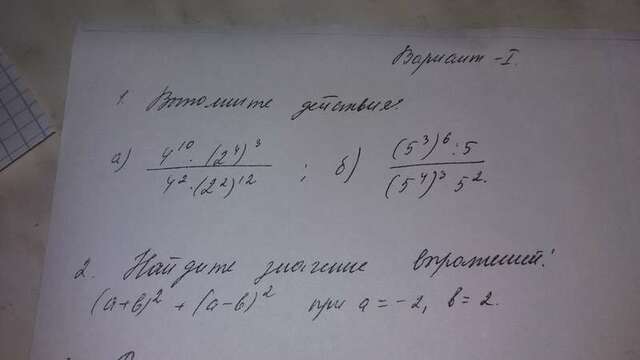 Вариант -I.
1. Выполните действия:
а) (4^10 · (2^4)^3) / (4^2 · (2^2)^12) ; б) ((5^3)^6 : 5) / ((5^4)^3 · 5^2)
2. Найдите значение выражений:
(а+в)^2 + (а-в)^2 при а = -2, в = 2.